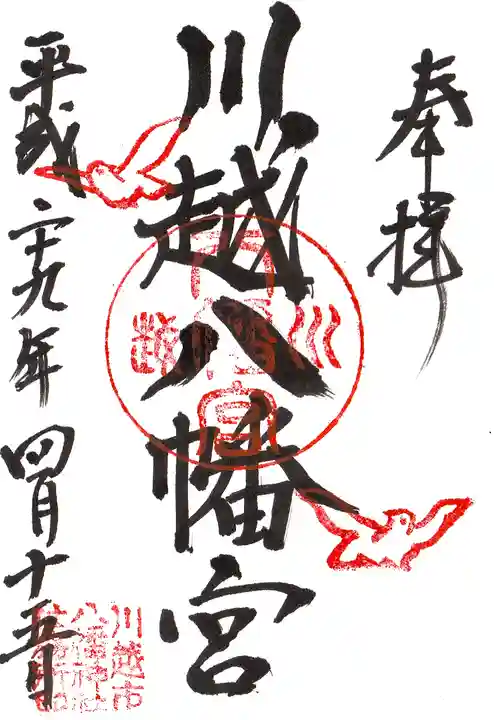 奉拝
川越八幡宮
平成二十九年四月十五日
川越
八幡宮
川越市
八幡神社